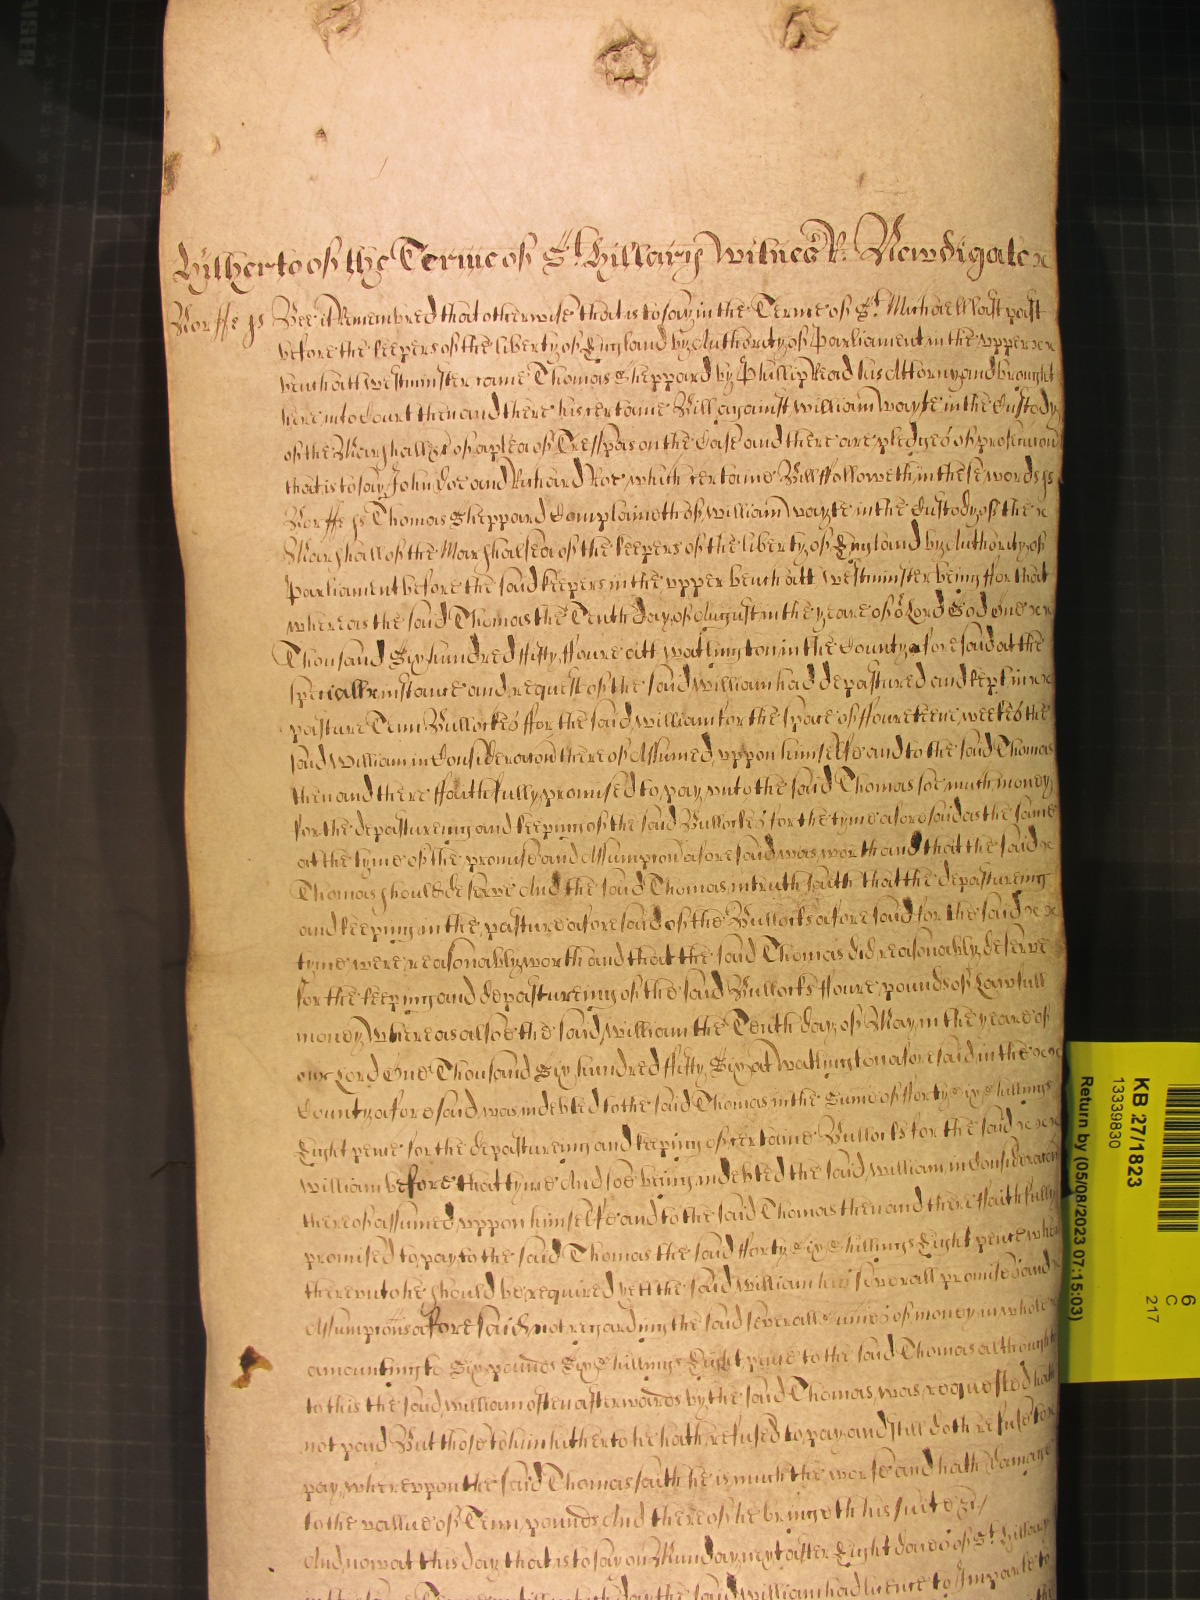 Hitherto of the Terme of St. Hillary Witnes R: Newdigate
Norff ss Bee it Remembred that otherwise that is to say in the Terme of St. Michaell last past
before the keepers of the liberty of England by Authority of Parliament in the upper
bench att westminster came Thomas Sheppard by Phillip Read his Attorny and brought
here into Court then and there his certaine Bill against William wayte in the Custody
of the Marshall &c of a plea of Trespas on the Case and there are pledges of prosecucion
that is to say John Doe and Richard Roe which certaine Bill ffolloweth in these words ss
Norff ss Thomas Sheppard Complaineth of William wayte in the Custody of the
Marshall of the Marshalsea of the keepers of the liberty of England by Authority of
Parliament before the said keepers in the upper bench att westminster being ffor that
whereas the said Thomas the Tenth day of August in the yeare of or Lord God One
Thousand Six hundred ffifty ffoure att watlington in the County aforesaid at the
speciall instance and request of the said William had depastured and kept in
pasture Tenn Bullockes ffor the said William for the space of ffourteene weekes the
said William in Consideracon thereof Assumed uppon himselfe and to the said Thomas
then and there ffaithfully promised to pay unto the said Thomas soe much money
for the depastureing and keeping of the said Bullockes for the tyme aforesaid as the same
at the tyme of the promise and Assumpcon aforesaid was worth and that the said
Thomas should deserve And the said Thomas in truth saith that the depastureing
and keeping in the pasture aforesaid of the Bullocks aforesaid for the said
tyme were reasonably worth and that the said Thomas did reasonably deserve
for the keeping and depastureing of the said Bullocks ffoure pounds of Lawfull
money whereas alsoe the said William the Tenth day of May in the yeare of
our Lord One Thousand Six hundred ffifty Six at watlington aforesaid in the
County aforesaid was indebted to the said Thomas in the Sume of fforty six shillings
Eight pence for the depastureing and keeping of certaine Bullocks for the said
William before that tyme And soe being indebted the said William in Consideracon
thereof assumed uppon himselfe and to the said Thomas then and there ffaithfully
promised to pay to the said Thomas the said fforty six shillings Eight pence when
thereunto he should be required yett the said William his severall promises and
Assumpcons aforesaid not regarding the said severall sumes of money in whole
amounting to Six pounds Six Shillings Eight pence to the said Thomas although
to this the said William often afterwards by the said Thomas was requested hath
not paid But those to him hitherto he hath refused to pay and still doth refuse to
pay whereuppon the said Thomas saith he is much the worse and hath damage
to the vallue of Tenn pounds And thereof he bringeth his suite &c
And now at this day that is to say on Munday next after Eight daies of St. Hillary
the said William had licence to Imparle to
KB 27/1823
13339830
Return by (05/08/2023 07:15:03)
6
C
217